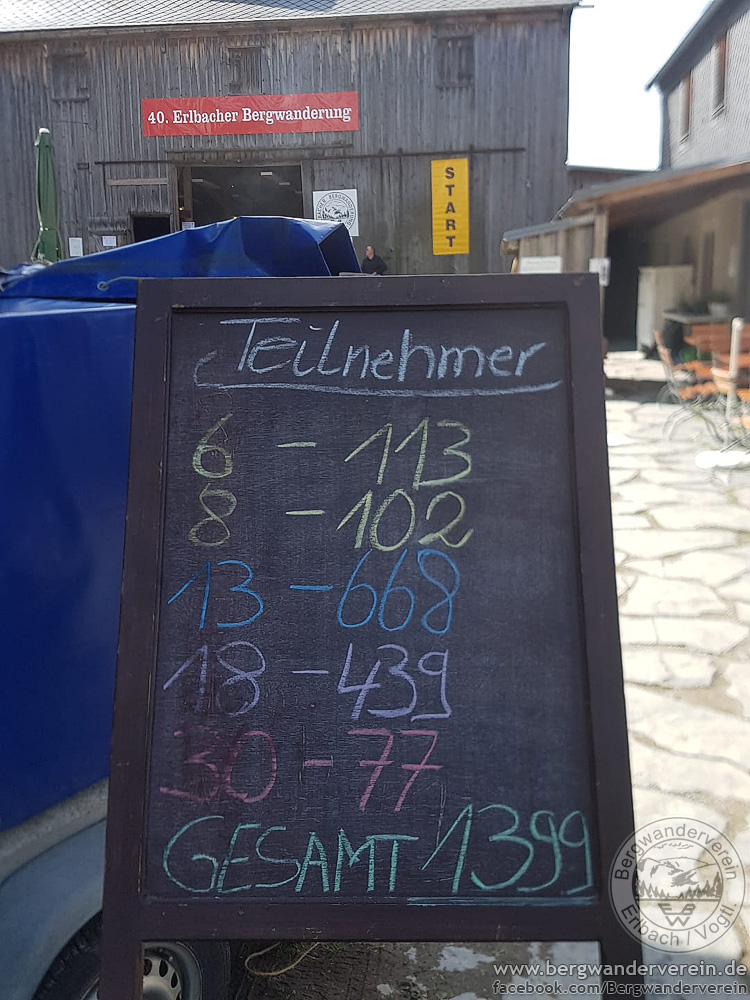 40. Erlbacher Bergwanderung
START
Teilnehmer
6 - 113
8 - 102
13 - 668
18 - 439
30 - 77
GESAMT 1399
Bergwanderverein
Erlbach / Vogtl.
www.bergwanderverein.de
facebook.com/Bergwanderverein